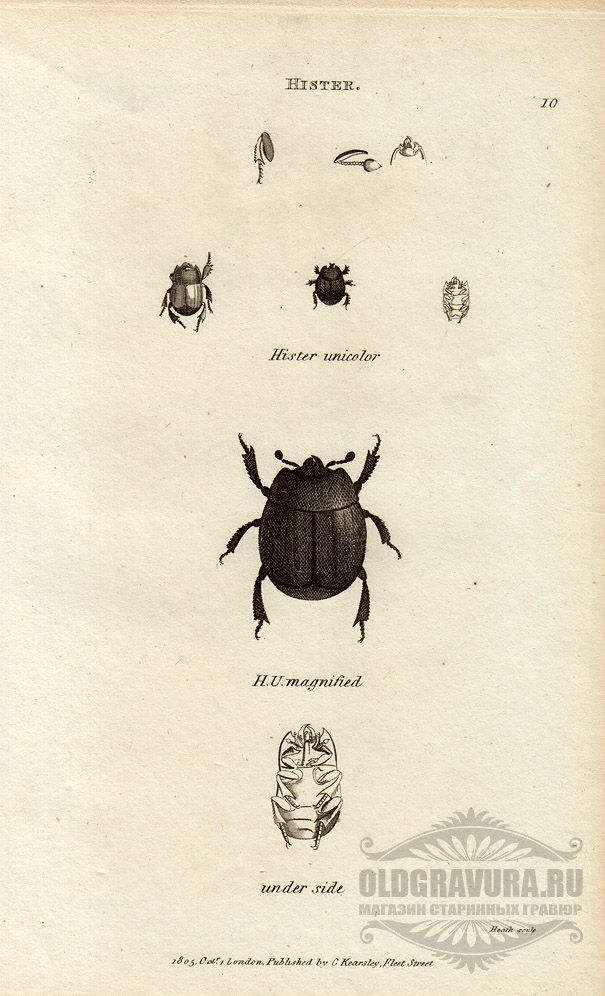 HISTER.
10
Hister unicolor
H.U. magnified
under side
OLDGRAVURA.RU
МАГАЗИН СТАРИННЫХ ГРАВЮР
Heath sculp
1805, Oct.r 1 London, Published by G Kearsley, Fleet Street